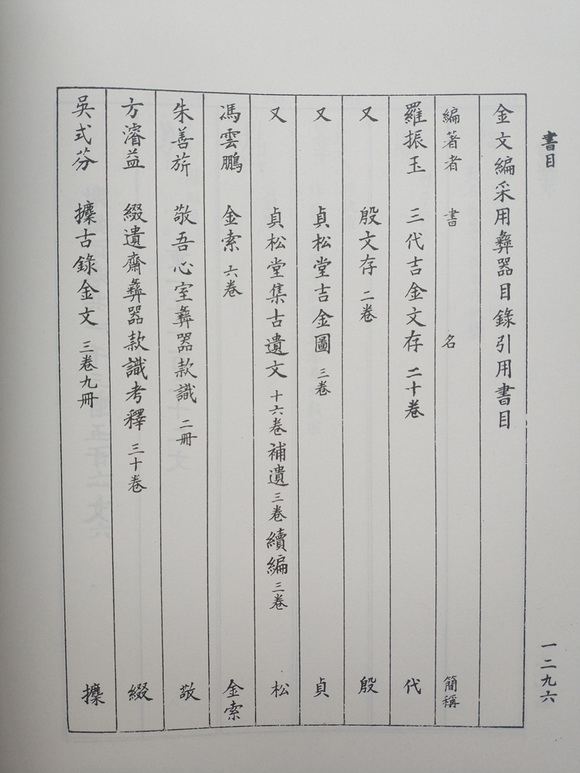 書目
金文編采用彝器目錄引用書目
編著者 書 名 簡稱
羅振玉 三代吉金文存 二十卷 代
又 殷文存 二卷 殷
又 貞松堂吉金圖 三卷 貞
又 貞松堂集古遺文 十六卷 補遺 三卷 續編 三卷 松
馮雲鵬 金索 六卷 金索
朱善旂 敬吾心室彝器款識 二冊 敬
方濬益 綴遺齋彝器款識考釋 三十卷 綴
吳式芬 攈古錄金文 三卷九冊 攈
一二九六